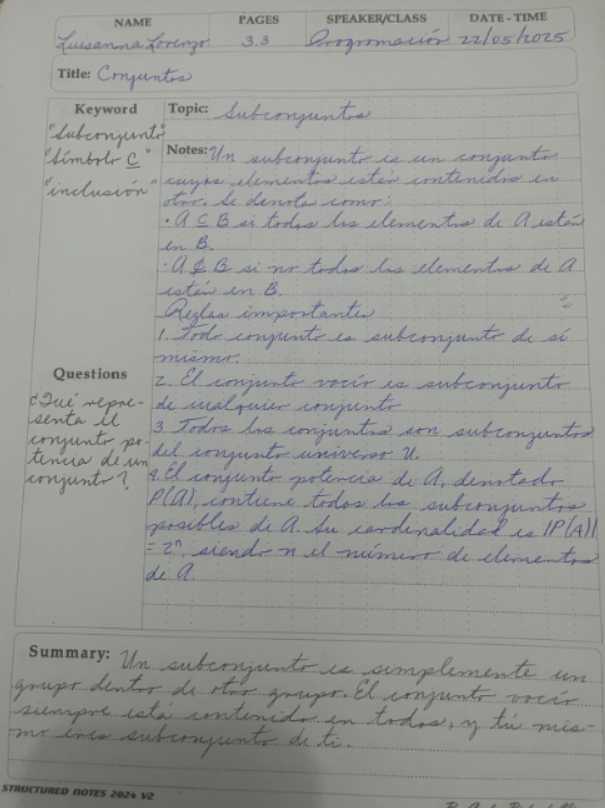 NAME PAGES SPEAKER/CLASS DATE - TIME
Luisanna Lorenzo 3.3 Programación 22/05/2025
Title: Conjuntos
Keyword
"Subconjunto"
"Símbolo ⊆"
"inclusión"
Topic: Subconjuntos
Notes: Un subconjunto es un conjunto
cuyos elementos están contenidos en
otro. Se denota como:
· A ⊆ B si todos los elementos de A están
en B.
· A ⊈ B si no todos los elementos de A
están en B.
Reglas importantes
1. Todo conjunto es subconjunto de sí
mismo.
2. El conjunto vacío es subconjunto
de cualquier conjunto
3. Todos los conjuntos son subconjuntos
del conjunto universo U.
4. El conjunto potencia de A, denotado
P(A), contiene todos los subconjuntos
posibles de A. Su cardinalidad es |P(A)|
= 2ⁿ, siendo n el número de elementos
de A.
Questions
¿Qué repre-
senta el
conjunto po-
tencia de un
conjunto?
Summary: Un subconjunto es simplemente un
grupo dentro de otro grupo. El conjunto vacío
siempre está contenido en todos, y tú mis-
mo eres subconjunto de ti.
STRUCTURED NOTES 2024 V2